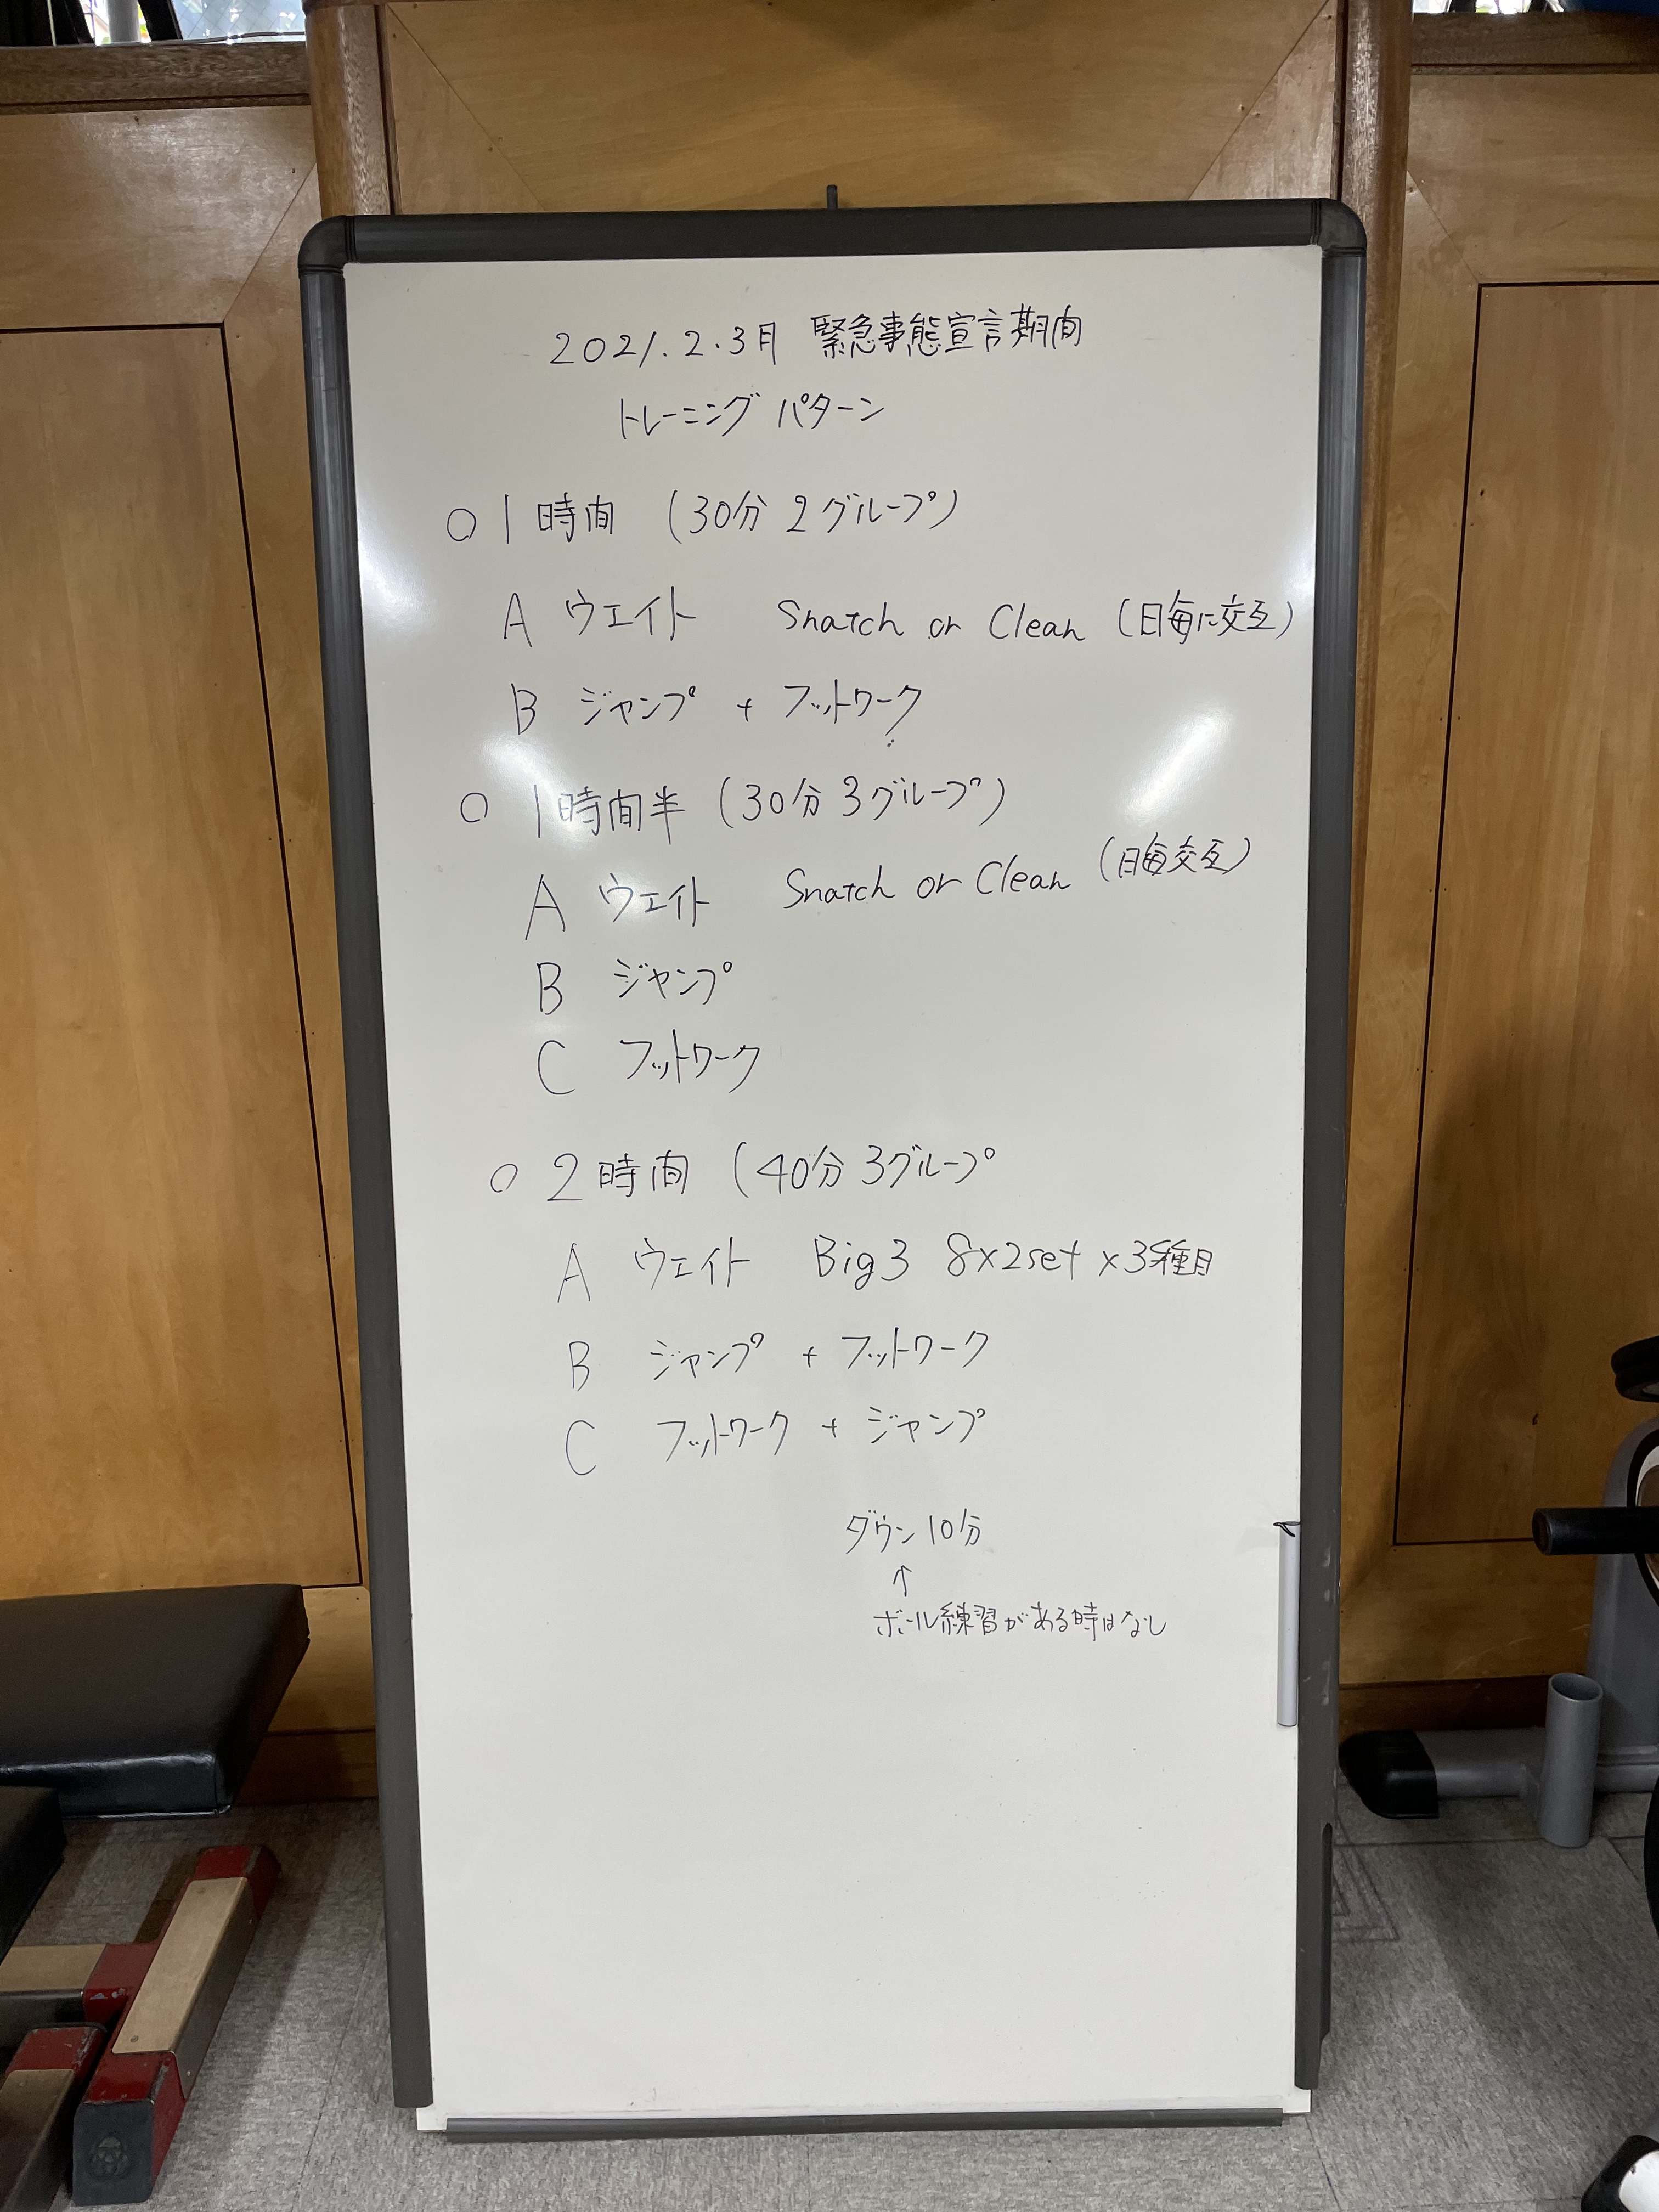 2021.2.3月 緊急事態宣言期間
トレーニング パターン
○ 1時間 (30分 2グループ)
A ウエイト Snatch or Clean (日毎に交互)
B ジャンプ + フットワーク
○ 1時間半 (30分 3グループ)
A ウエイト Snatch or Clean (日毎交互)
B ジャンプ
C フットワーク
○ 2時間 (40分 3グループ
A ウエイト Big3 8×2set×3種目
B ジャンプ + フットワーク
C フットワーク + ジャンプ
ダウン10分
↑
ボール練習がある時はなし